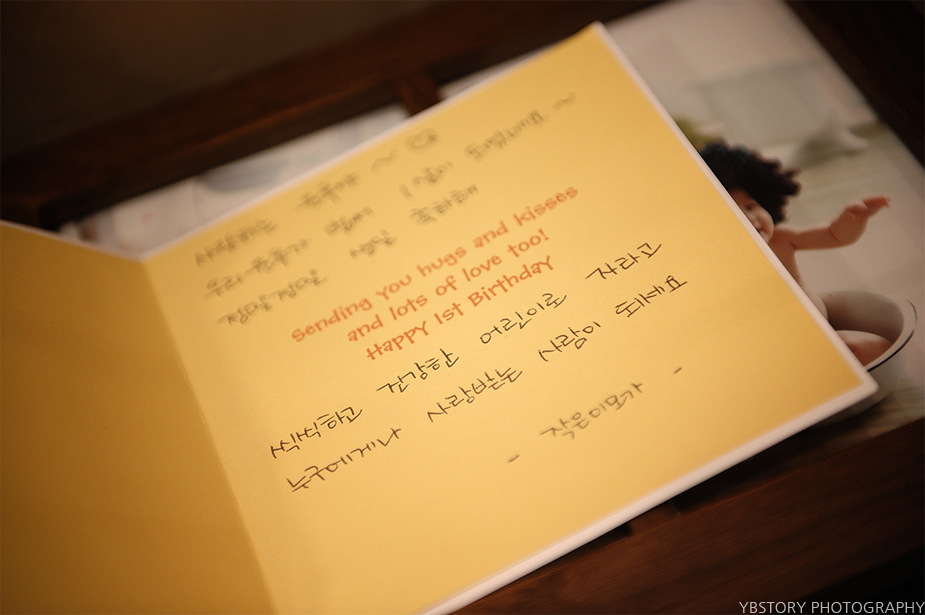 사랑하는
우리 벌써 1살이 되었네요~
정말정말 생일 축하해
Sending you hugs and kisses
and lots of love too!
Happy 1st Birthday
씩씩하고 건강한 어린이로 자라고
누구에게나 사랑받는 사람이 되세요
- 작은이모가 -
YBSTORY PHOTOGRAPHY